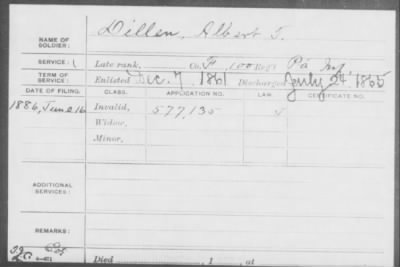 NAME OF SOLDIER: Dillen, Albert T.
SERVICE: Late rank, Co. F, 100 Reg't Pa Inf
TERM OF SERVICE: Enlisted Dec. 7 1861 Discharged July 24, 1865
DATE OF FILING. CLASS. APPLICATION NO. LAW. CERTIFICATE NO.
1886, June 16 Invalid, 577,135
Widow,
Minor,
ADDITIONAL SERVICES:
REMARKS:
Died , 1 , at